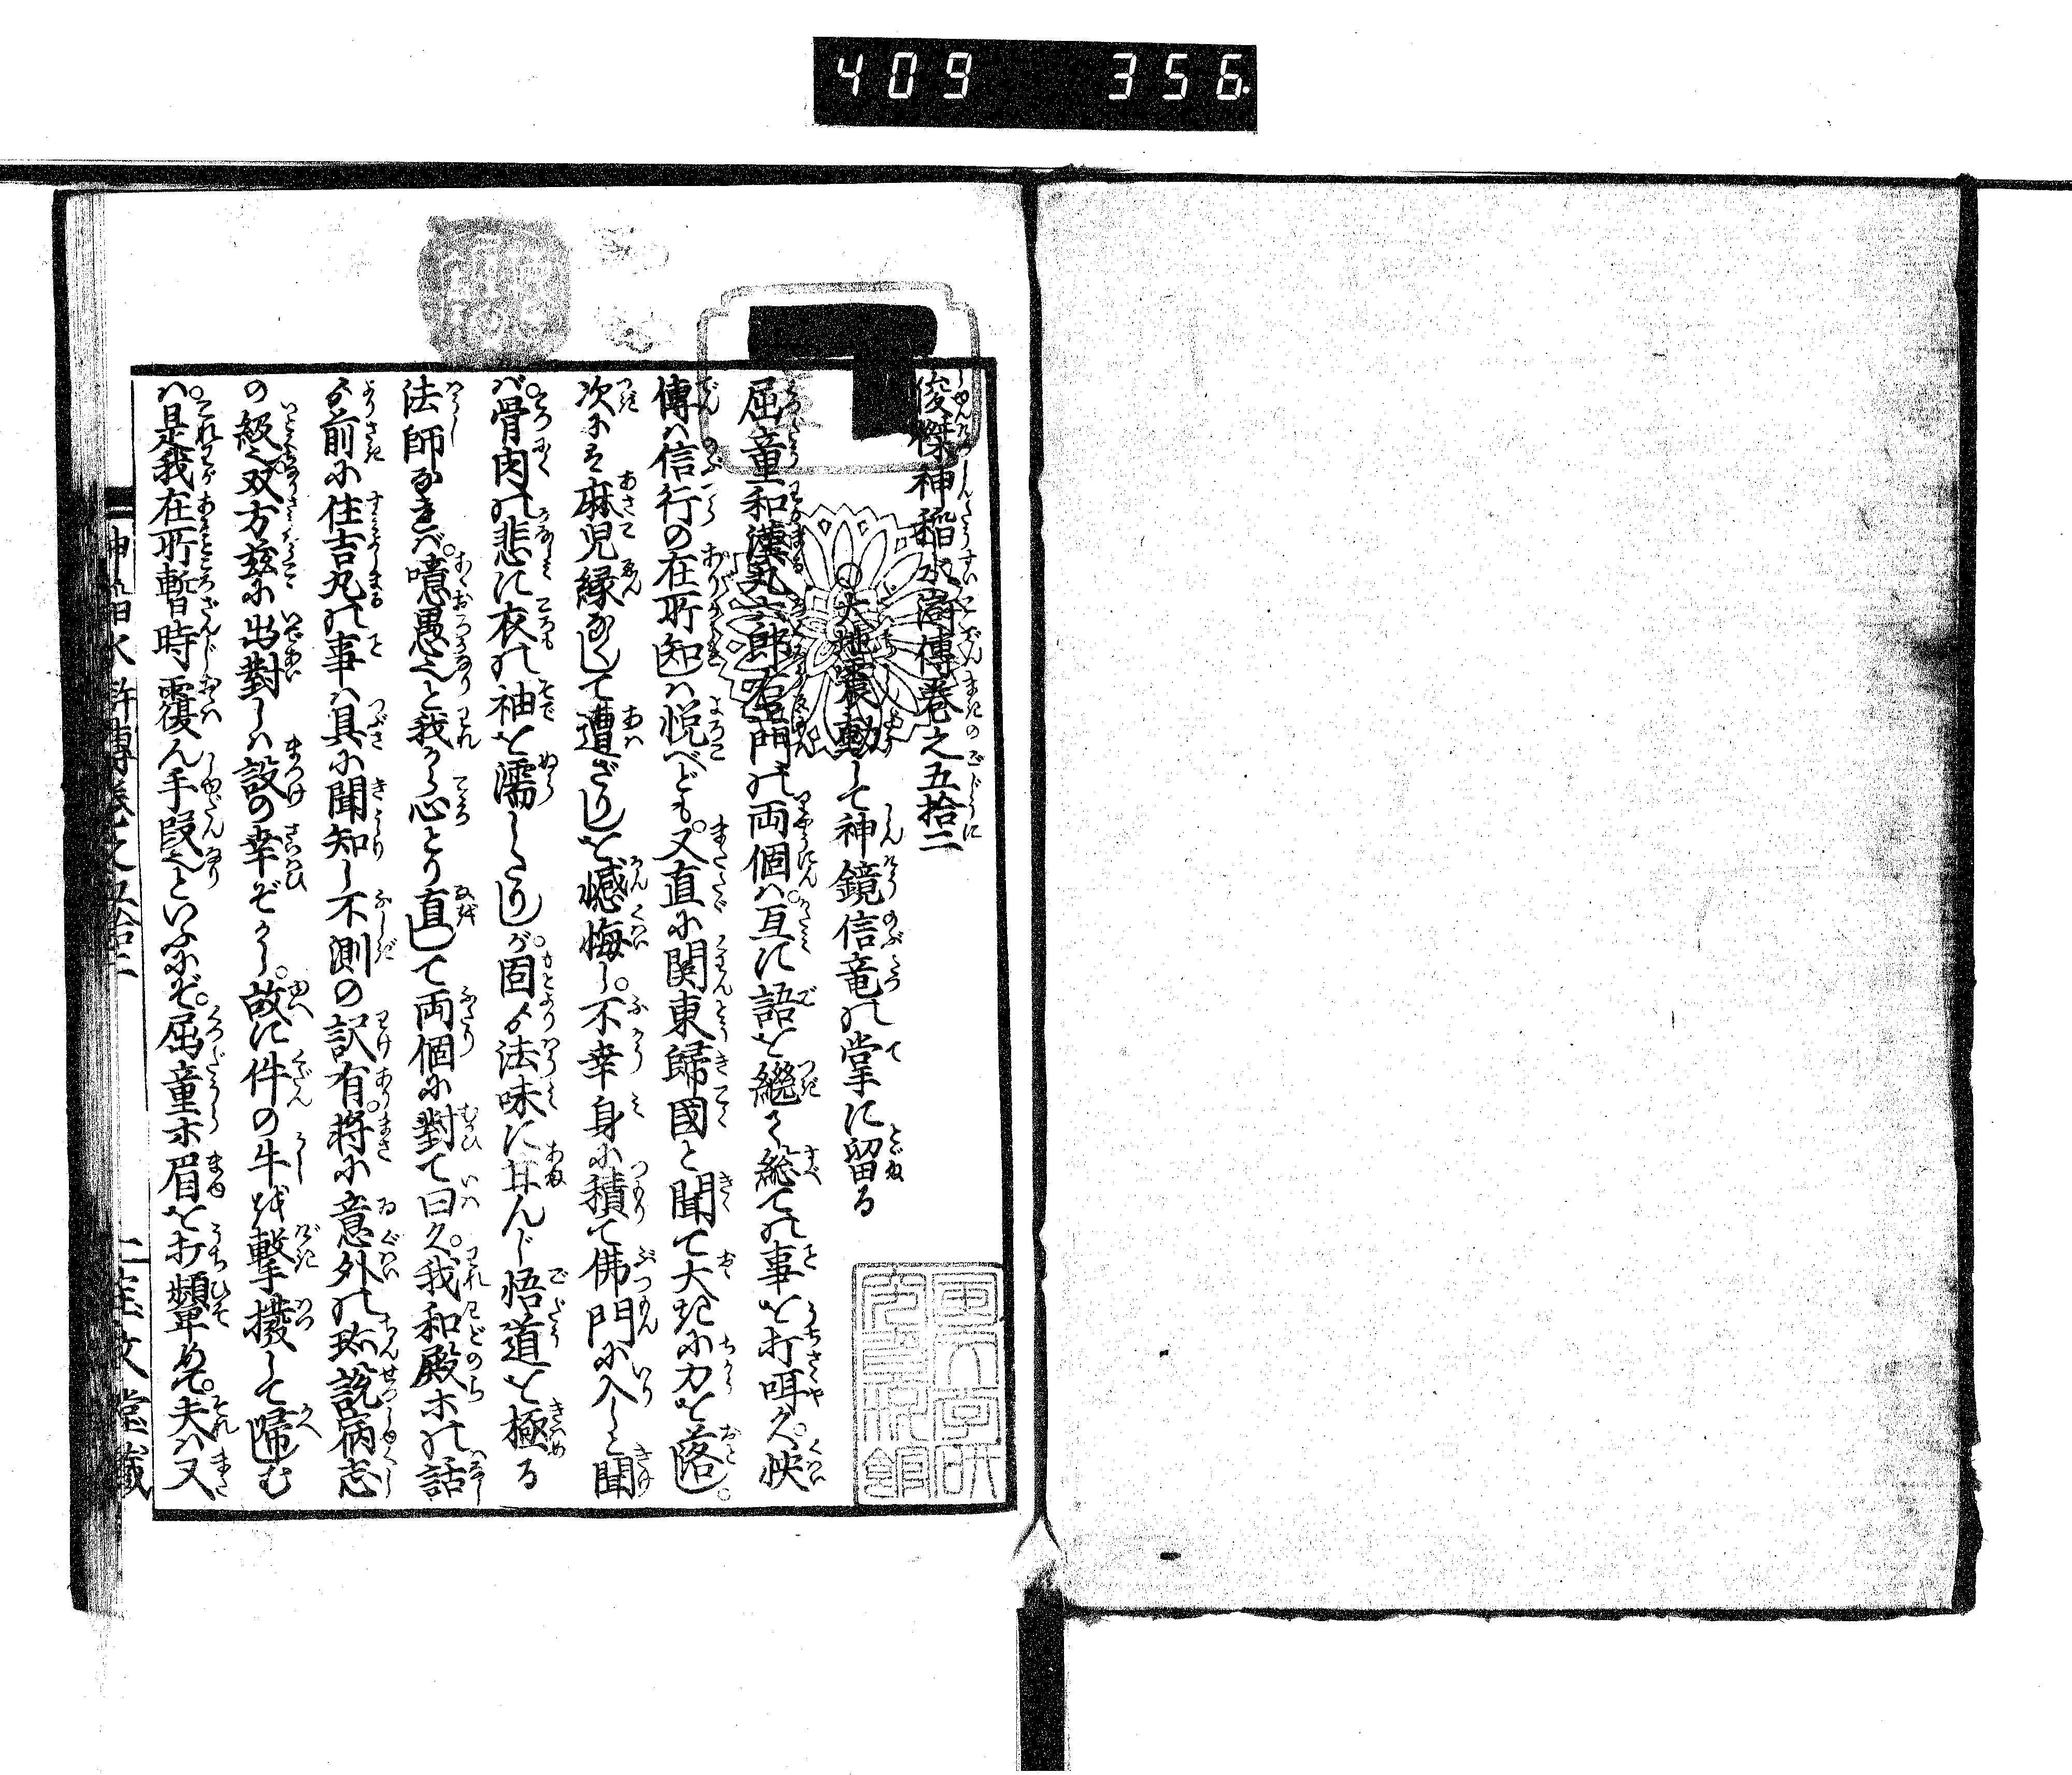 409 356
俊傑神稲水滸傳巻之五拾二
○大地震動して神鏡信竜の掌に留る
屈童和漢丸六郎右門の両個ハ。互に語を繼て総ての事を打咡く。怏
傳ハ信行の在所知ハ悦べども。又直に関東歸國と聞て大きに力を落し。
次に麻児縁なくして遭ざりしを憾悔し。不幸身に積て佛門に入しと聞
バ。骨肉の悲に衣の袖を濡したりしが。固より法味に甘んじ悟道を極る
法師なれバ。噫愚也と我から心とり直して両個に對て曰く。我和殿ホの話
より前に住吉丸の事ハ具に聞知し不測の訳有。将に意外の珎説病志
の級也双方茲に出對しハ設の幸ぞかし。故に件の牛を撃撥して帰しむ
ハ。是我在所暫時覆ん手段也といふにぞ。屈童ホ眉を打顰めて。夫ハ又
神稲水滸傳巻之五拾二